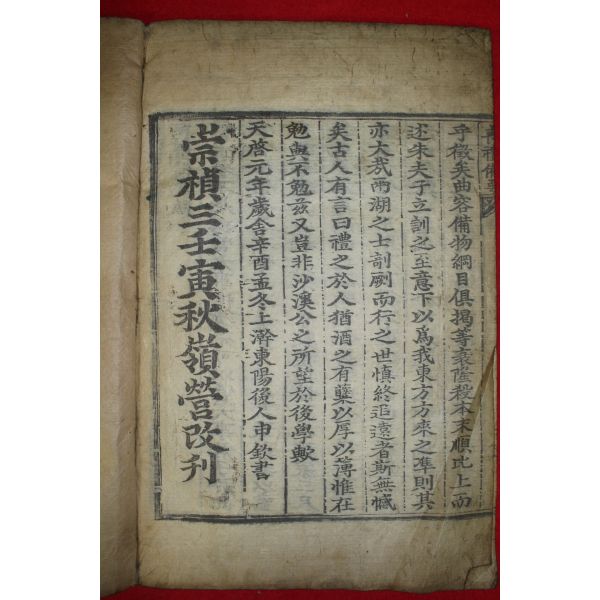 喪禮備要
乎徵矣曲容備物綱目俱揭等衰隆殺本末順比上而
述朱夫子立訓之至意下以爲我東方方來之準則其
亦大哉兩湖之士剞劂而行之世愼終追遠者斯無憾
矣古人有言曰禮之於人猶酒之有蘖以厚以薄惟在
勉與不勉玆又豈非沙溪公之所望於後學歟
天啓元年歲舍辛酉孟冬上澣東陽後人申欽書
崇禎三壬寅秋嶺營改刊